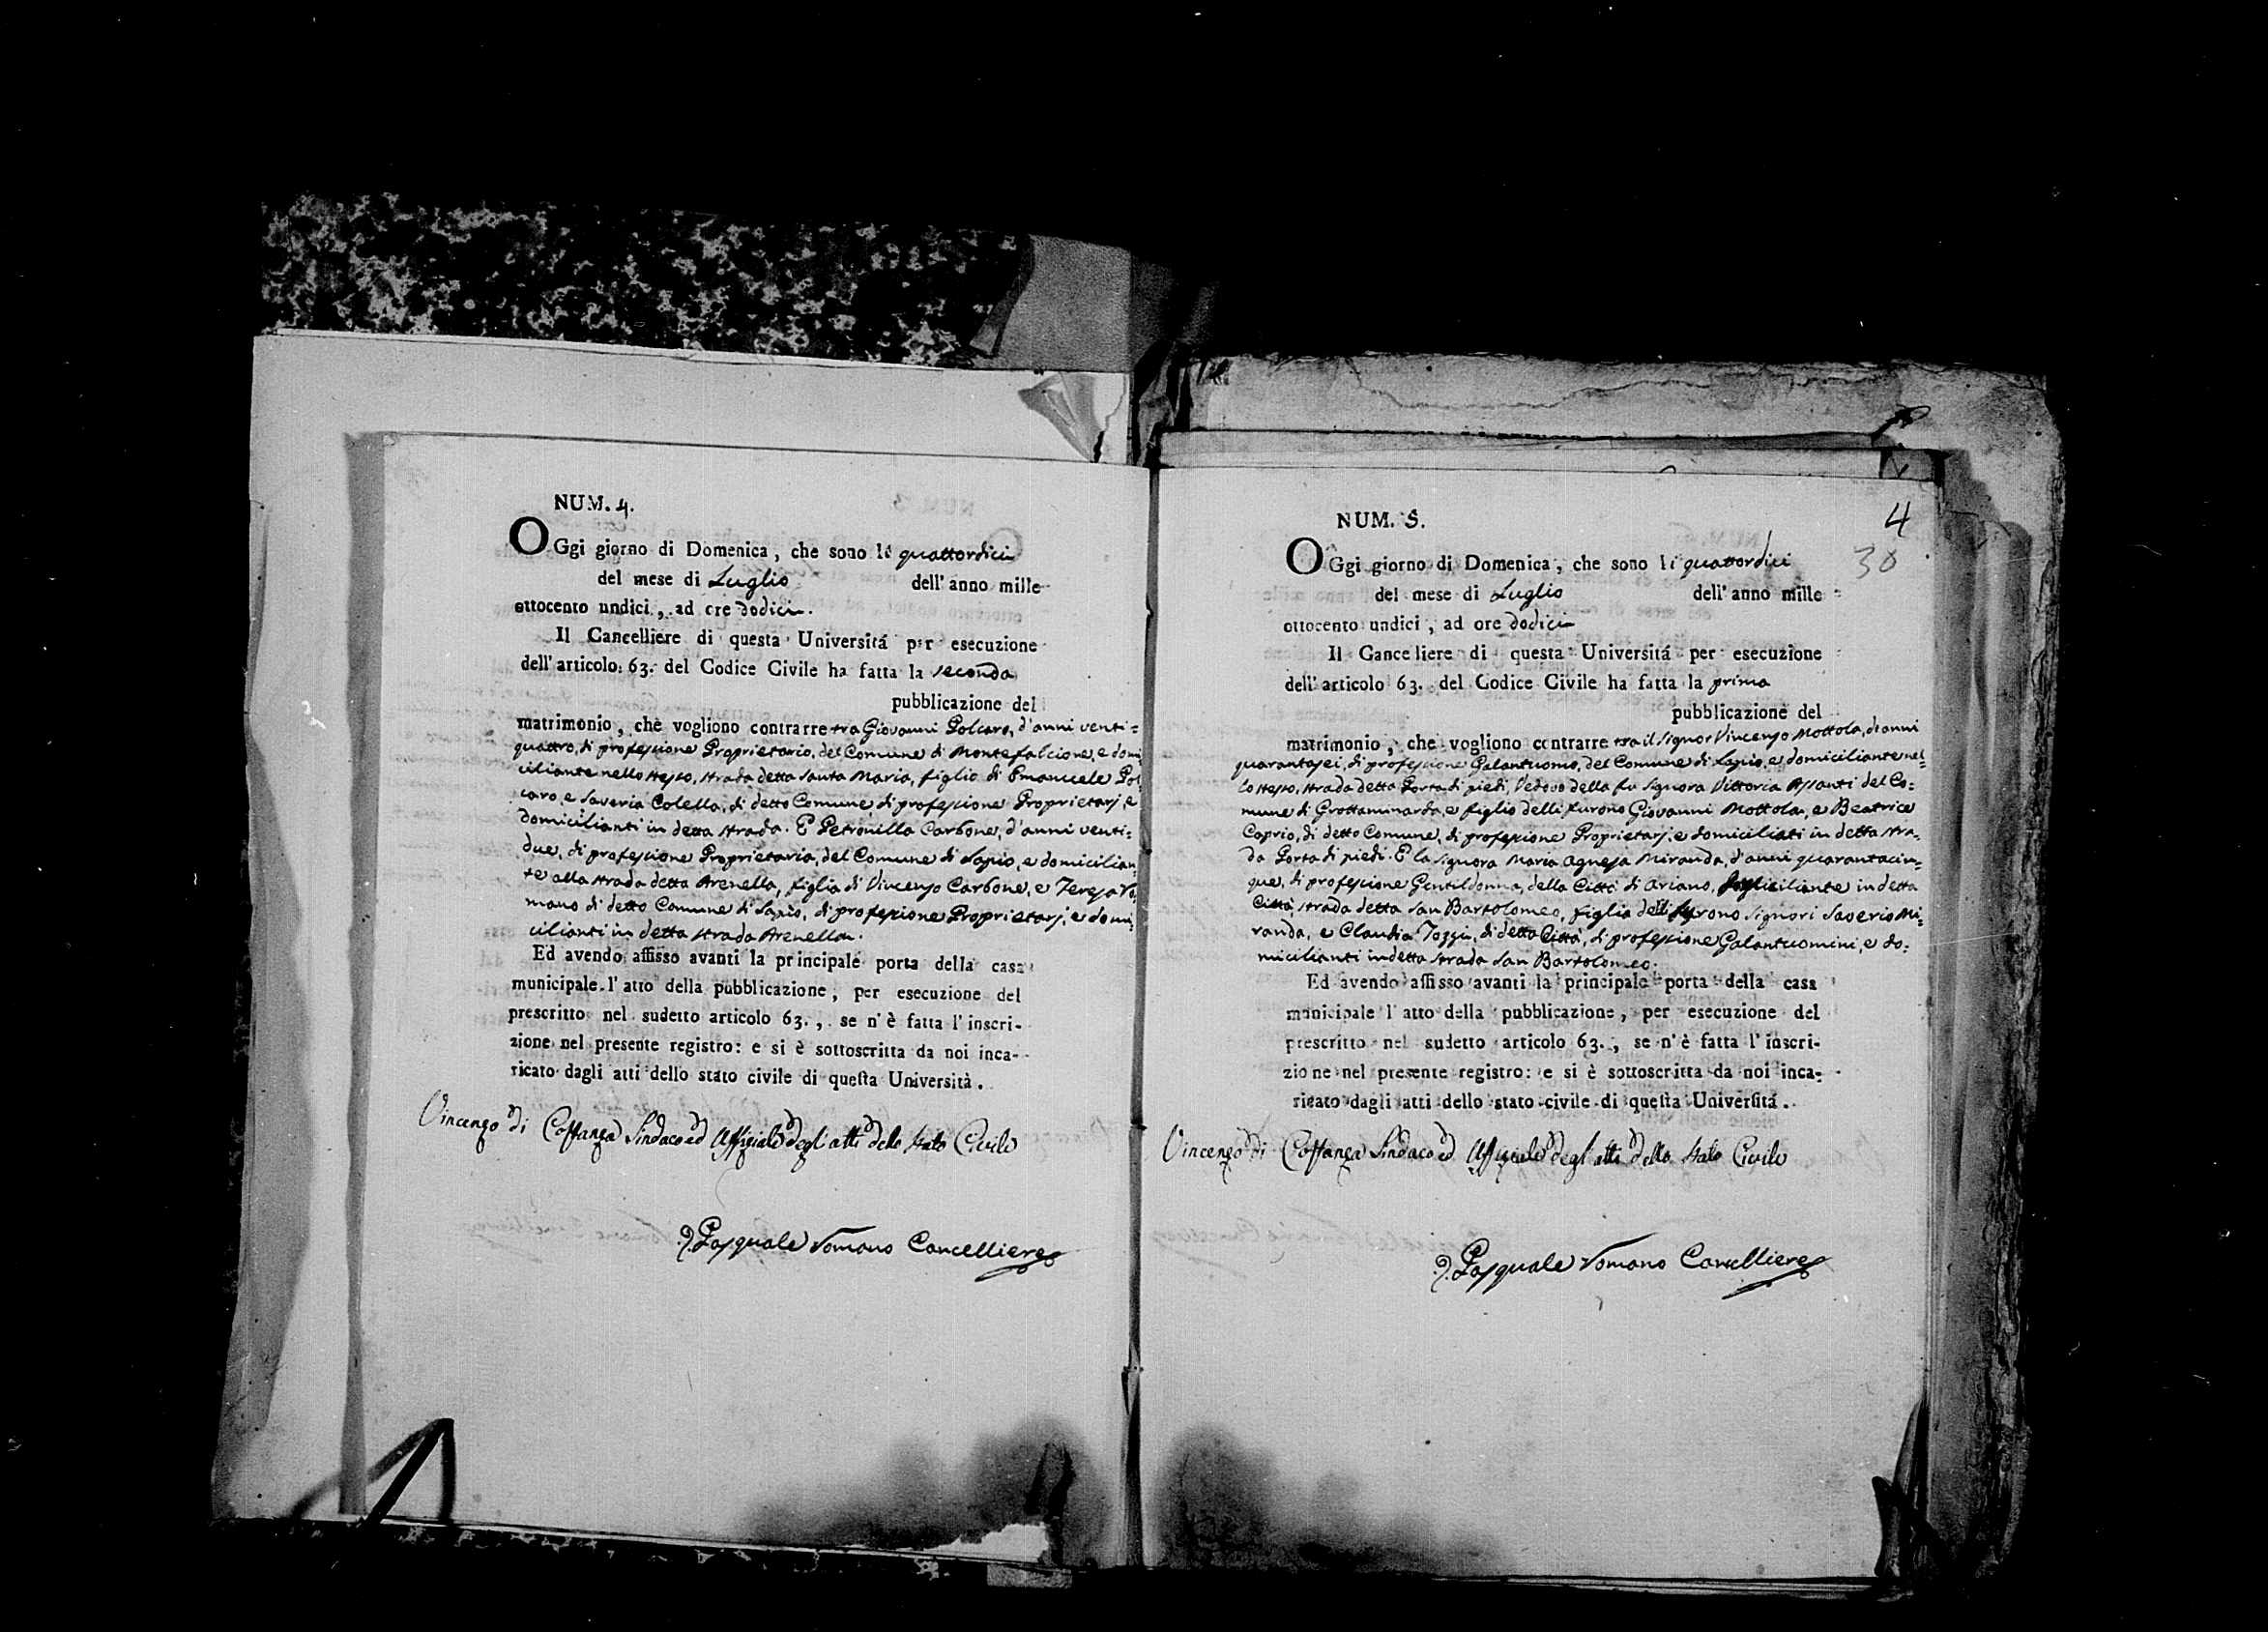 NUM. 4.
OGgi giorno di Domenica, che sono li quattordici
del mese di Luglio dell'anno mille
ottocento undici, ad ore dodici.
Il Cancelliere di questa Universitá per esecuzione
dell'articolo 63. del Codice Civile ha fatta la seconda
pubblicazione del
matrimonio, che vogliono contrarre tra Giovanni Polcaro, d'anni venti=
quattro, di professione Proprietario, del Comune di Montefalcione, e domi
ciliante nello stesso, strada detta Santa Maria, figlio di Emanuele Pol
caro, e Saveria Colella, di detto Comune, di professione Proprietarj, e
domicilianti in detta strada. E Petronilla Carbone, d'anni venti=
due, di professione Proprietaria, del Comune di Lapio, e domicilian
te alla strada detta Arenella, figlia di Vincenzo Carbone, e Teresa Ro
mano di detto Comune di Lapio, di professione Proprietarj, e domi
cilianti in detta strada Arenella.
Ed avendo affisso avanti la principale porta della casa
municipale l'atto della pubblicazione, per esecuzione del
prescritto nel sudetto articolo 63., se n'è fatta l'inscri-
zione nel presente registro: e si è sottoscritta da noi inca-
ricato dagli atti dello stato civile di questa Università.
Vincenzo di Costanza Sindaco ed Uffiziale degl'atti dello Stato Civile
D. Pasquale Romano Cancelliere
4
30
NUM. 5.
OGgi giorno di Domenica, che sono li quattordici
del mese di Luglio dell'anno mille
ottocento undici, ad ore dodici
Il Cancelliere di questa Universitá per esecuzione
dell'articolo 63. del Codice Civile ha fatta la prima
pubblicazione del
matrimonio, che vogliono contrarre tra il Signor Vincenzo Mottola, di anni
quarantasei, di professione Galantuomo, del Comune di Lapio, e domiciliante nel=
lo stesso, strada detta Porta di piedi, Vedovo della fu Signora Vittoria Assanti del Co=
mune di Grottaminarda, e figlio delli furono Giovanni Mottola, e Beatrice
Caprio, di detto Comune, di professione Proprietarj, e domiciliati in detta stra=
da Porta di piedi. E la Signora Maria Agnesa Miranda, d'anni quarantacin=
que, di professione Gentildonna, della Città di Ariano, domiciliante in detta
Città, strada detta San Bartolomeo, figlia delli furono Signori Saverio Mi=
randa, e Claudia Tozzi, di detta Città, di professione Galantuomini, e do=
micilianti in detta strada San Bartolomeo.
Ed avendo affisso avanti la principale porta della casa
municipale l'atto della pubblicazione, per esecuzione del
prescritto nel sudetto articolo 63., se n'è fatta l'inscri-
zione nel presente registro: e si è sottoscritta da noi inca-
ricato dagli atti dello stato civile di questa Universitá.
Vincenzo di Costanza Sindaco ed Uffiziale degl'atti dello Stato Civile
D. Pasquale Romano Cancelliere